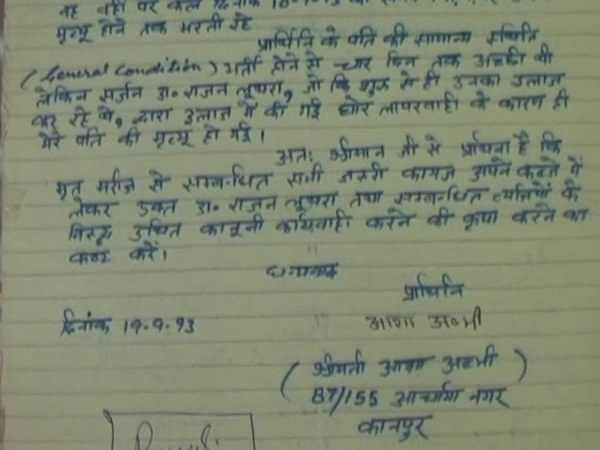 वह वहाँ पर कल दिनांक 18-9-93 की
मृत्यू होने तक भरती रहे
प्रार्थिनि के पति की सामान्य स्थिति
(General Condition) भर्ती होने से चार दिन तक अच्छी थी
लेकिन सर्जन डा. राजन लूथरा, जो कि शुरू से ही उनका इलाज
कर रहे थे, द्वारा इलाज में की गई घोर लापरवाही के कारण ही
मेरे पति की मृत्यू हो गई।
अतः श्रीमान जी से प्रार्थना है कि
मृत मरीज से सम्बन्धित सभी जरूरी कागज अपने कब्जे में
लेकर उक्त डा. राजन लूथरा तथा सम्बन्धित व्यक्तियों के
विरुद्ध उचित कानूनी कार्यवाही करने की कृपा करने का
कष्ट करें।
धन्यवाद
प्रार्थिनि
दिनांक 19-9-93
आशा अवस्थी
(श्रीमती आशा अवस्थी)
87/155 आचार्य नगर
कानपुर